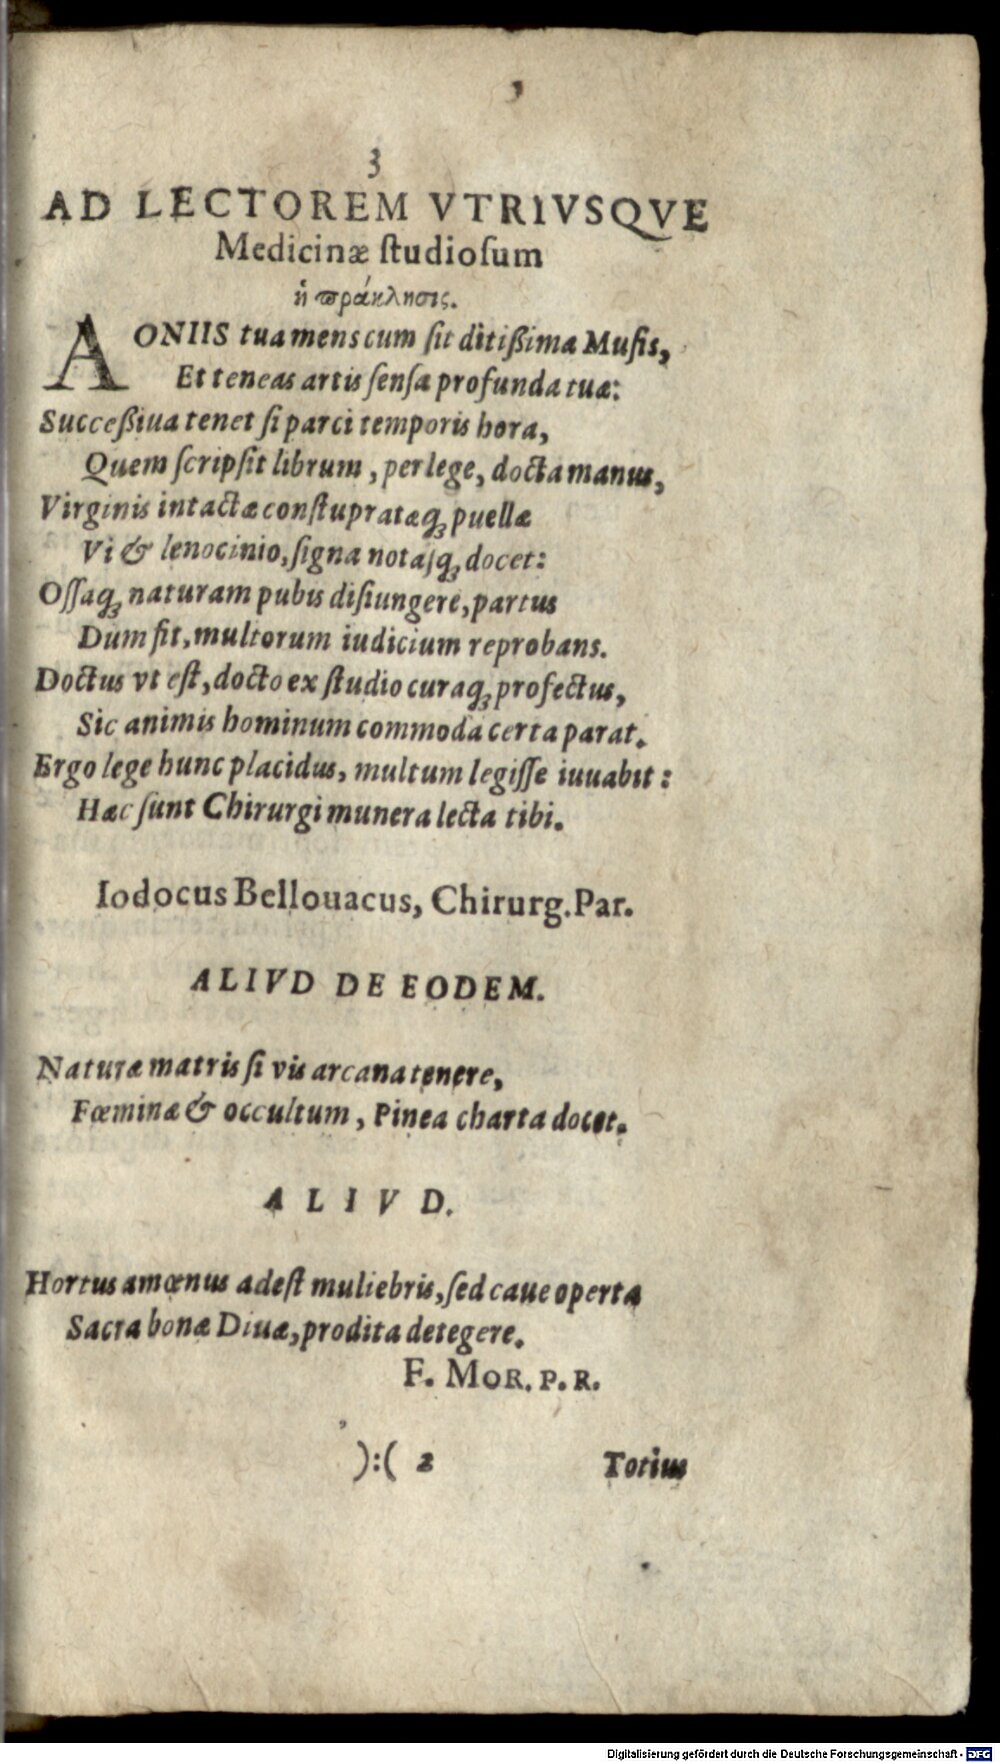 3
AD LECTOREM VTRIVSQVE
Medicinæ ſtudioſum
ἡ ϖράκλησις.
AONIIS tua mens cum ſit ditißima Muſis,
Et teneas artis ſenſa profunda tuæ:
Succeßiua tenet ſi parci temporis hora,
Quem ſcripſit librum, perlege, docta manus,
Virginis intactæ conſtuprataeq́ꝫ puellæ
Vi & lenocinio, ſigna notaſq́ꝫ docet:
Oſſaq́ꝫ naturam pubis diſiungere, partus
Dum fit, multorum iudicium reprobans.
Doctus vt eſt, docto ex ſtudio curaq́ꝫ profectus,
Sic animis hominum commoda certa parat.
Ergo lege hunc placidus, multum legiſſe iuuabit:
Hæc ſunt Chirurgi munera lecta tibi.
Iodocus Bellouacus, Chirurg. Par.
ALIVD DE EODEM.
Naturæ matris ſi vis arcana tenere,
Fœminæ & occultum, Pinea charta docet.
ALIVD.
Hortus amœnus adeſt muliebris, ſed caue operta
Sacra bonæ Diuæ, prodita detegere.
F. MOR. P. R.
):( 2 Totius
Digitalisierung gefördert durch die Deutsche Forschungsgemeinschaft - DFG